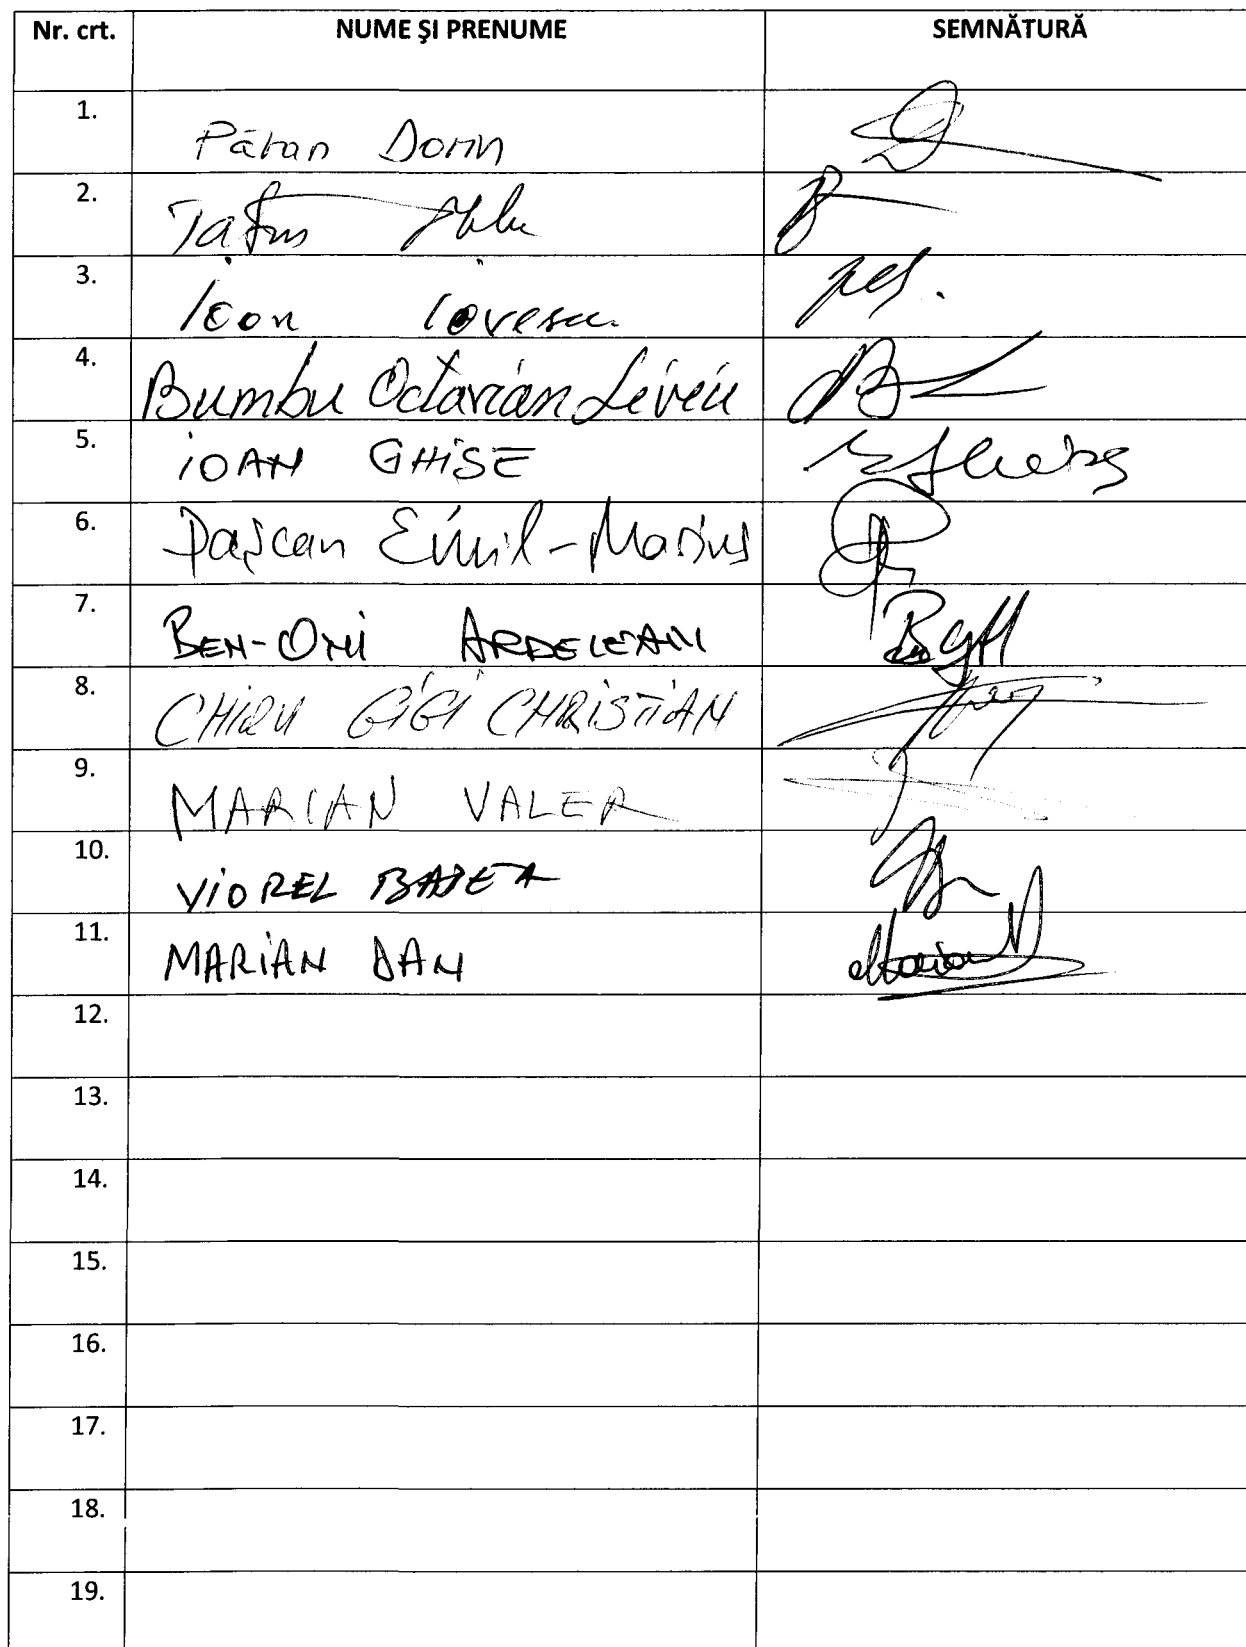 Nr. crt. NUME ŞI PRENUME SEMNĂTURĂ
1. Păran Dorin
2.
3. Icon Iovescu
4. Bumbu Octavian Liviu
5. IOAN GHISE
6. Paşcan Emil-Marius
7. BEN-ONI ARDELEAN
8. CHIRU GIGI CHRISTIAN
9. MARIAN VALER
10. VIOREL BADEA
11. MARIAN DAN
12.
13.
14.
15.
16.
17.
18.
19.